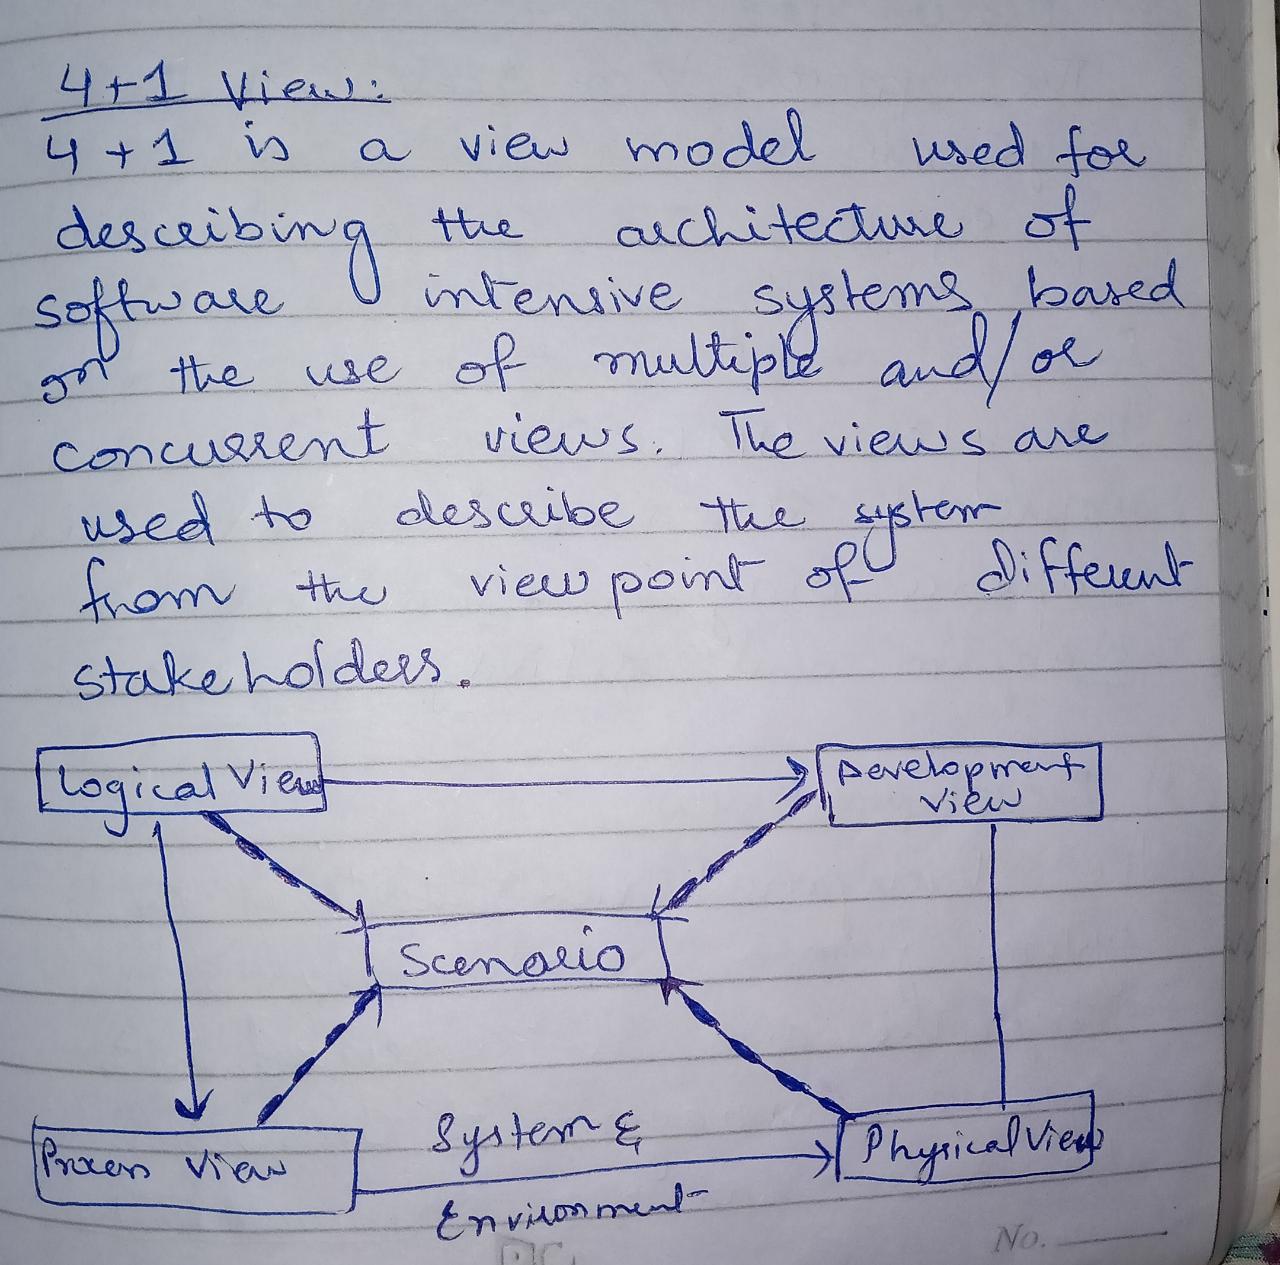 4+1 View:
4+1 is a view model used for
describing the architecture of
software intensive systems, based
on the use of multiple and/or
concurrent views. The views are
used to describe the system
from the viewpoint of different
stakeholders.
Logical View
Development
View
Scenario
System &
Process View
Physical View
Environment
No.